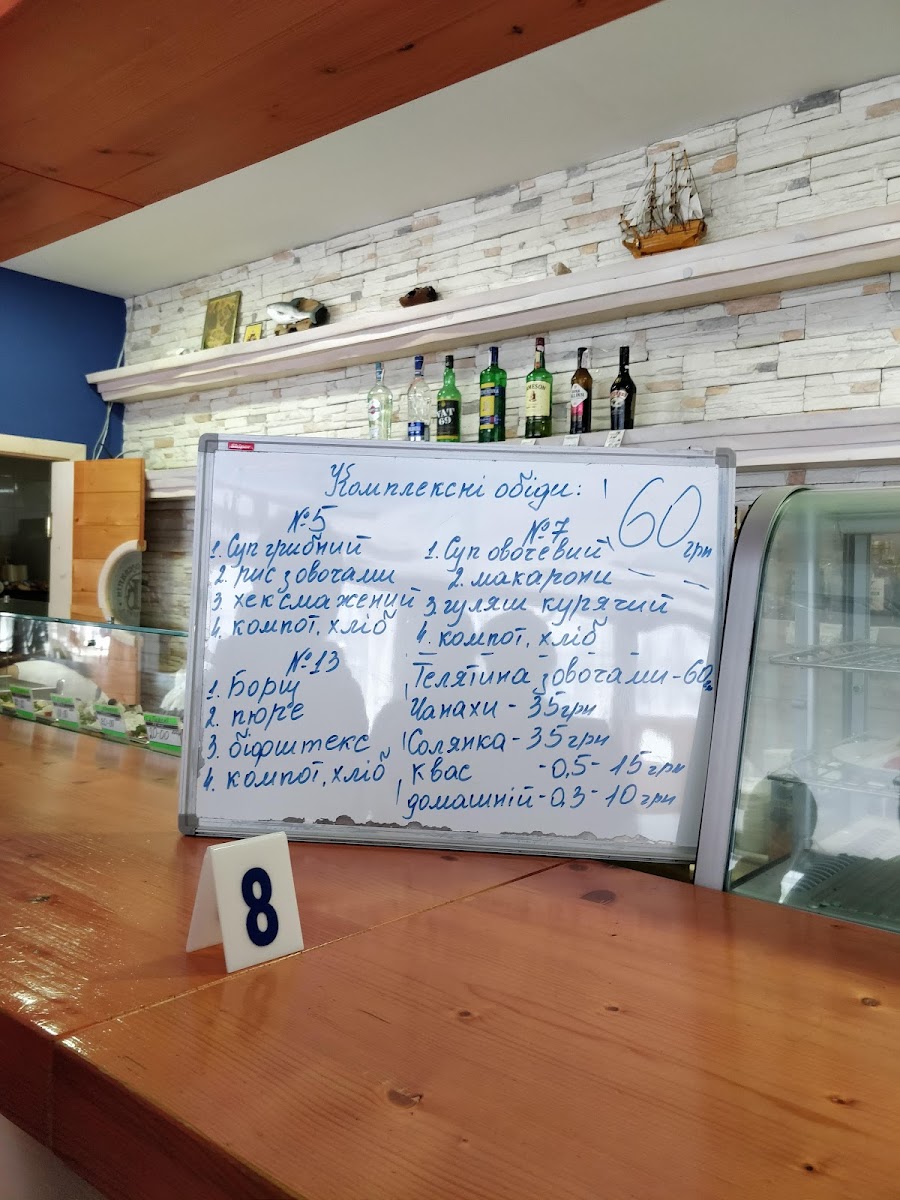 Комплексні обіди:
60 грн
№5
1. Суп грибний
2. рис з овочами
3. хек смажений
4. компот, хліб
№7
1. Суп овочевий
2. макарони
3. гуляш курячий
4. компот, хліб
№13
1. Борщ
2. пюре
3. біфштекс
4. компот, хліб
Телятина з овочами - 60
Чанахи - 35 грн
Солянка - 35 грн
квас - 0,5 - 15 грн
домашній - 0,3 - 10 грн
8
VAT
69
JAMESON